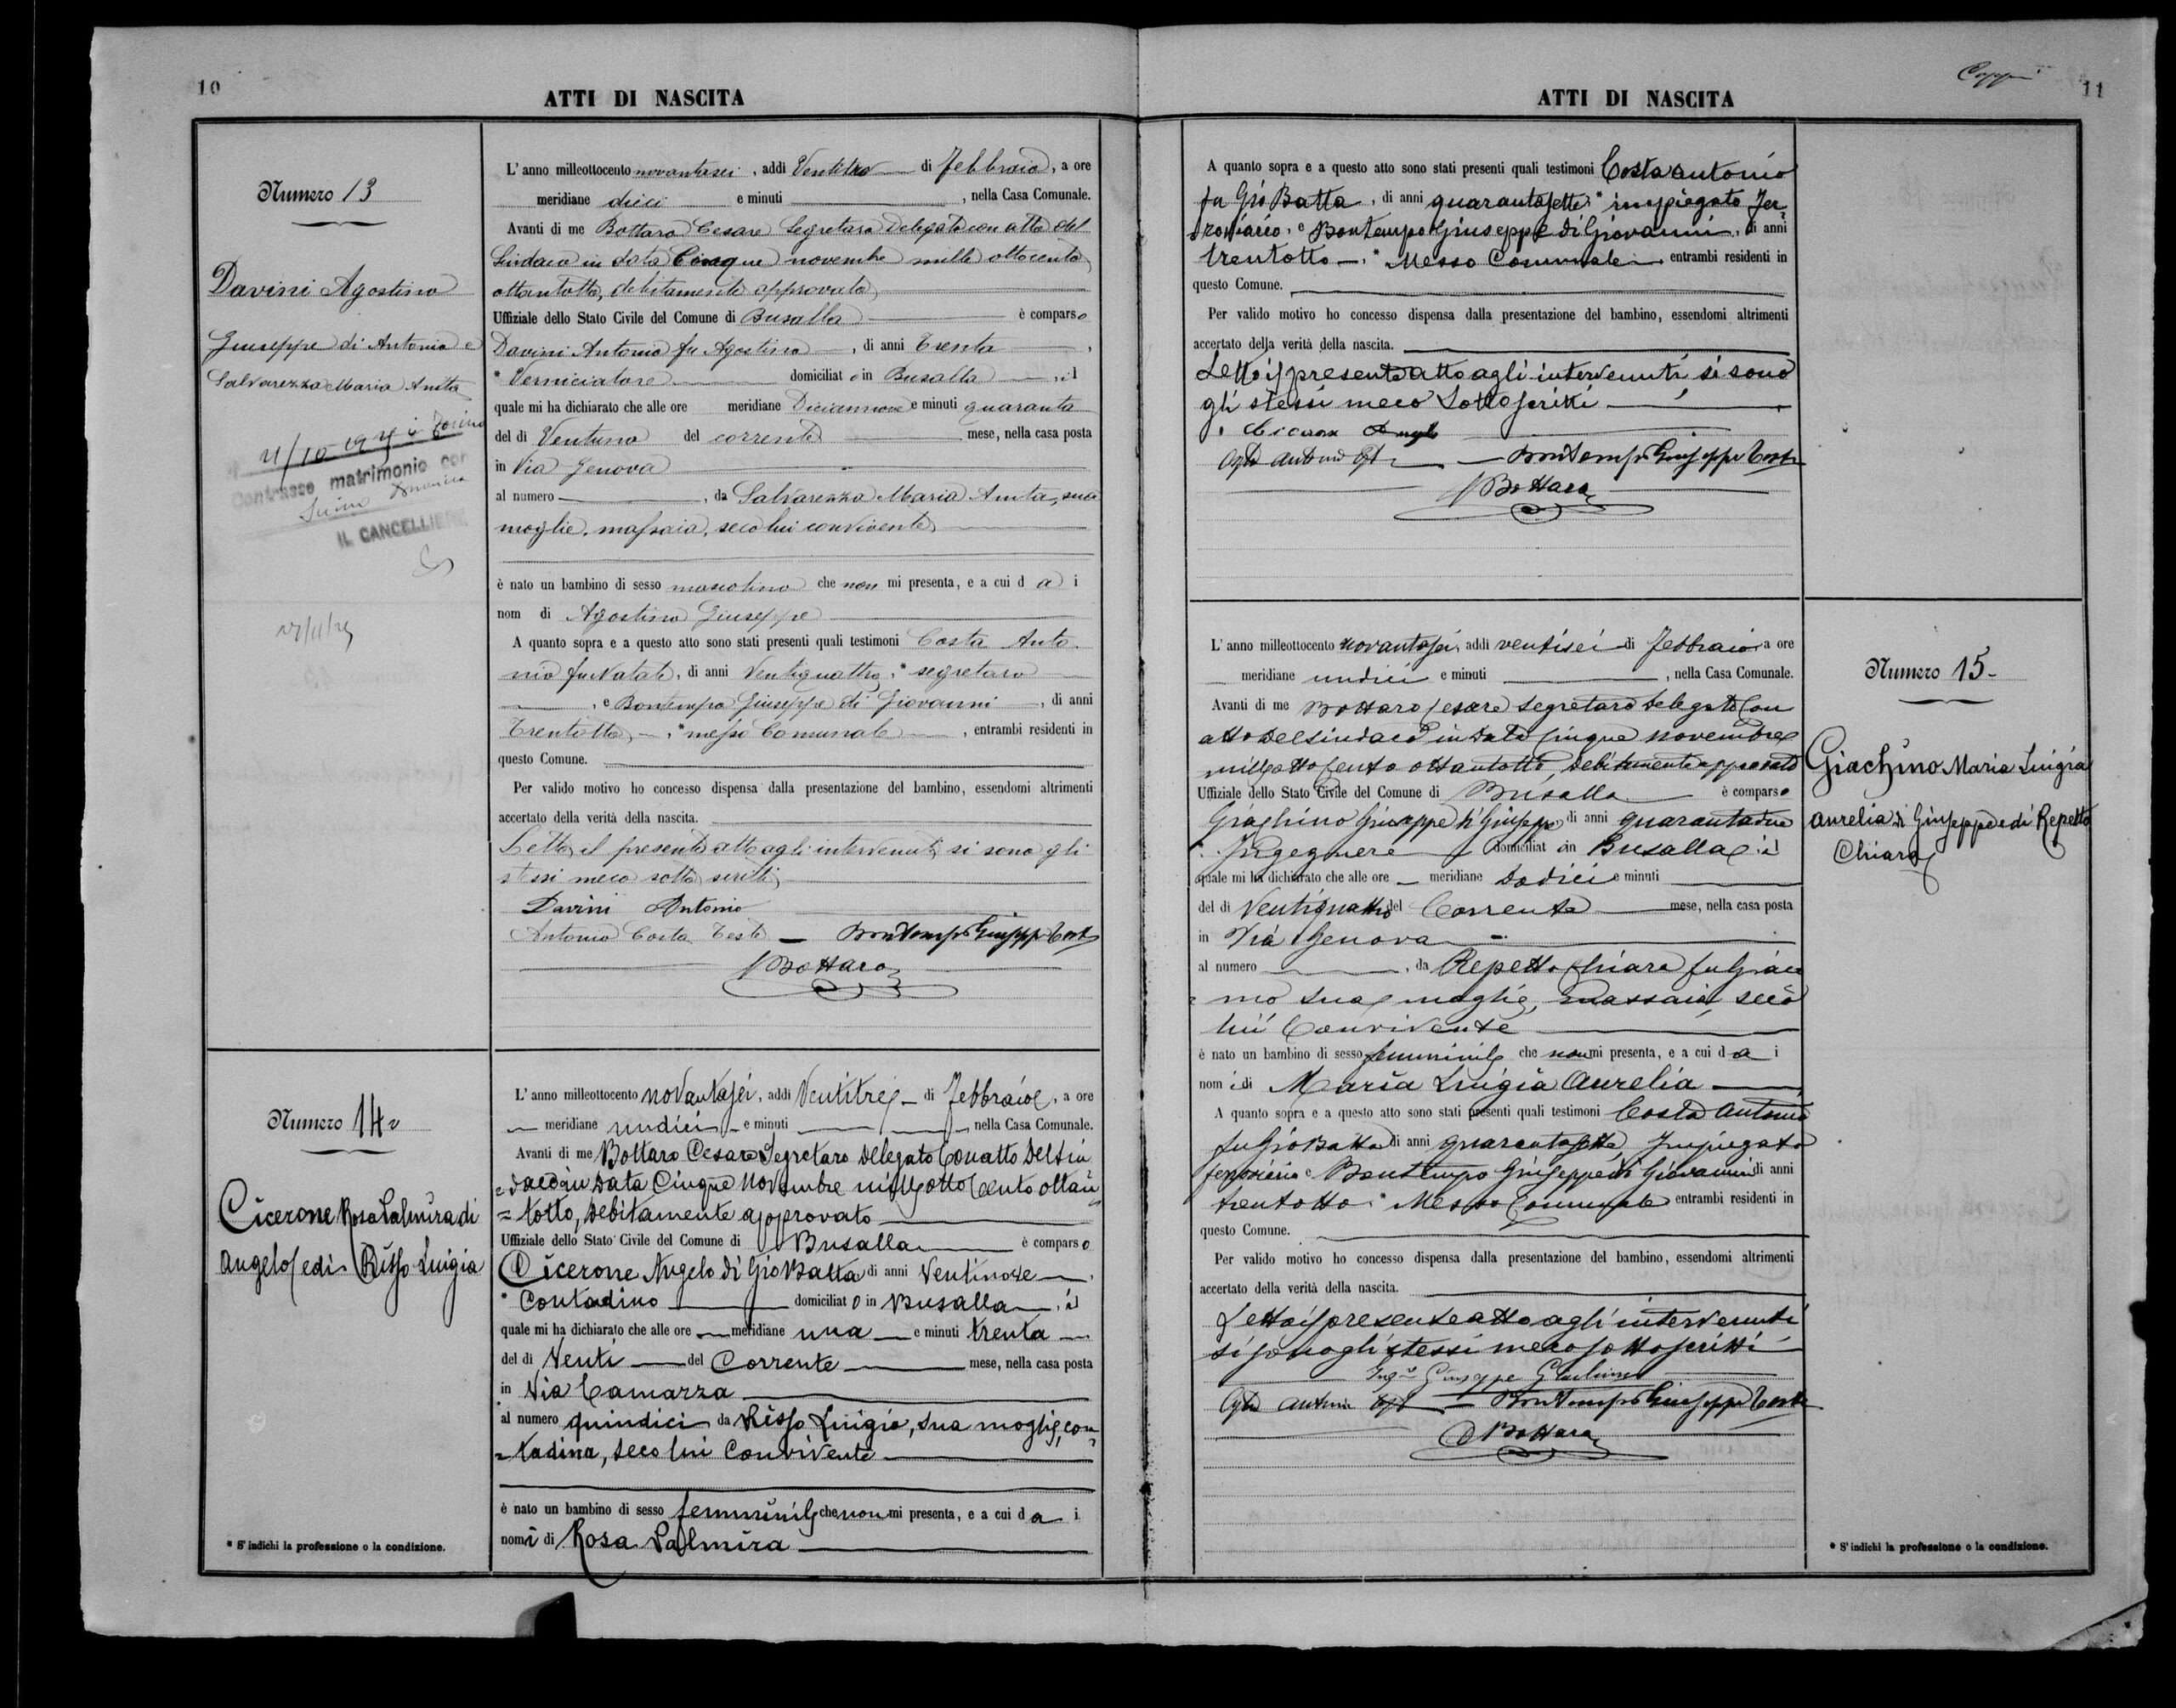 10
ATTI DI NASCITA
Numero 13
Davini Agostino
Giuseppe di Antonio e
Salvarezza Maria Anita
Contrasse matrimonio con
IL CANCELLIERE
L'anno milleottocento novantasei, addi Ventitre di Febbraio, a ore
meridiane dieci e minuti , nella Casa Comunale.
Avanti di me Bottaro Cesare Segretaro Delegato con atto del
Sindaco in data Cinque novembre mille ottocento
ottantotto, debitamente approvato
Uffiziale dello Stato Civile del Comune di Busalla è comparso
Davini Antonio fu Agostino, di anni Trenta,
* Verniciatore domiciliato in Busalla, il
quale mi ha dichiarato che alle ore meridiane Diciannove e minuti quaranta
del di Ventuno del corrente mese, nella casa posta
in Via Genova
al numero , da Salvarezza Maria Anita, sua
moglie, massaia, seco lui convivente
è nato un bambino di sesso mascolino che non mi presenta, e a cui da i
nom di Agostino Giuseppe
A quanto sopra e a questo atto sono stati presenti quali testimoni Costa Anto
nio fu Natale, di anni Ventiquattro, * segretaro
, e Bontempo Giuseppe di Giovanni, di anni
Trentotto, * messo Comunale, entrambi residenti in
questo Comune.
Per valido motivo ho concesso dispensa dalla presentazione del bambino, essendomi altrimenti
accertato della verità della nascita.
Letto il presente atto agli intervenuti si sono gli
stessi meco sotto scritti
Davini Antonio
Antonio Costa Teste — Bontempo Giuseppe Teste
Bottaro
Numero 14
Cicerone Rosa Palmira di
Angelo e di Risso Luigia
* S'indichi la professione o la condizione.
L'anno milleottocento novantasei, addi Ventitre di Febbraio, a ore
meridiane undici e minuti nella Casa Comunale.
Avanti di me Bottaro Cesare Segretaro Delegato Con atto Del Sin
=daco in Data Cinque Novembre mille otto Cento ottan
=totto, Debitamente approvato
Uffiziale dello Stato Civile del Comune di Busalla è comparso
Cicerone Angelo di Gio Batta di anni Ventinove,
* Contadino domiciliato in Busalla, il
quale mi ha dichiarato che alle ore meridiane una e minuti trenta
del di Venti del Corrente mese, nella casa posta
in Via Camarza
al numero quindici da Risso Luigia, sua moglie, con
=tadina, seco lui Convivente
è nato un bambino di sesso femminile che non mi presenta, e a cui da i
nomi di Rosa Palmira
11
ATTI DI NASCITA
A quanto sopra e a questo atto sono stati presenti quali testimoni Costa Antonio
fu Gio Batta, di anni quarantasette * impiegato Fer
=roviario, e Bontempo Giuseppe di Giovanni, di anni
trentotto, * Messo Comunale, entrambi residenti in
questo Comune.
Per valido motivo ho concesso dispensa dalla presentazione del bambino, essendomi altrimenti
accertato della verità della nascita.
Letto il presente atto agli intervenuti si sono
gli stessi meco Sottoscritti
Cicerone Angelo
Antonio — Bontempo Giuseppe Teste
Bottaro
L'anno milleottocento novantasei, addi ventisei di Febbraio a ore
meridiane undici e minuti , nella Casa Comunale.
Avanti di me Bottaro Cesare Segretaro Delegato Con
atto Del Sindaco in Data Cinque Novembre
mille otto Cento ottantotto, Debitamente approvato
Uffiziale dello Stato Civile del Comune di Busalla è comparso
Giachino Giuseppe di Giuseppe di anni quarantadue
* Ingegnere domiciliato in Busalla, il
quale mi ha dichiarato che alle ore meridiane Dodici e minuti
del di Ventiquattro del Corrente mese, nella casa posta
in Via Genova
al numero , da Repetto Chiara fu Giaco
=mo sua moglie, massaia, seco
lui Convivente
è nato un bambino di sesso femminile che non mi presenta, e a cui da i
nomi di Maria Luigia Aurelia
A quanto sopra e a questo atto sono stati presenti quali testimoni Costa Antonio
fu Gio Batta di anni quarantasette, Impiegato
ferroviario e Bontempo Giuseppe di Giovanni di anni
trentotto * Messo Comunale entrambi residenti in
questo Comune.
Per valido motivo ho concesso dispensa dalla presentazione del bambino, essendomi altrimenti
accertato della verità della nascita.
Letto il presente atto agli intervenuti
si sono gli stessi meco sottoscritti
Ing. Giuseppe Giachino
Antonio — Bontempo Giuseppe Teste
Bottaro
Numero 15
Giachino Maria Luigia
Aurelia di Giuseppe e di Repetto
Chiara
* S'indichi la professione o la condizione.